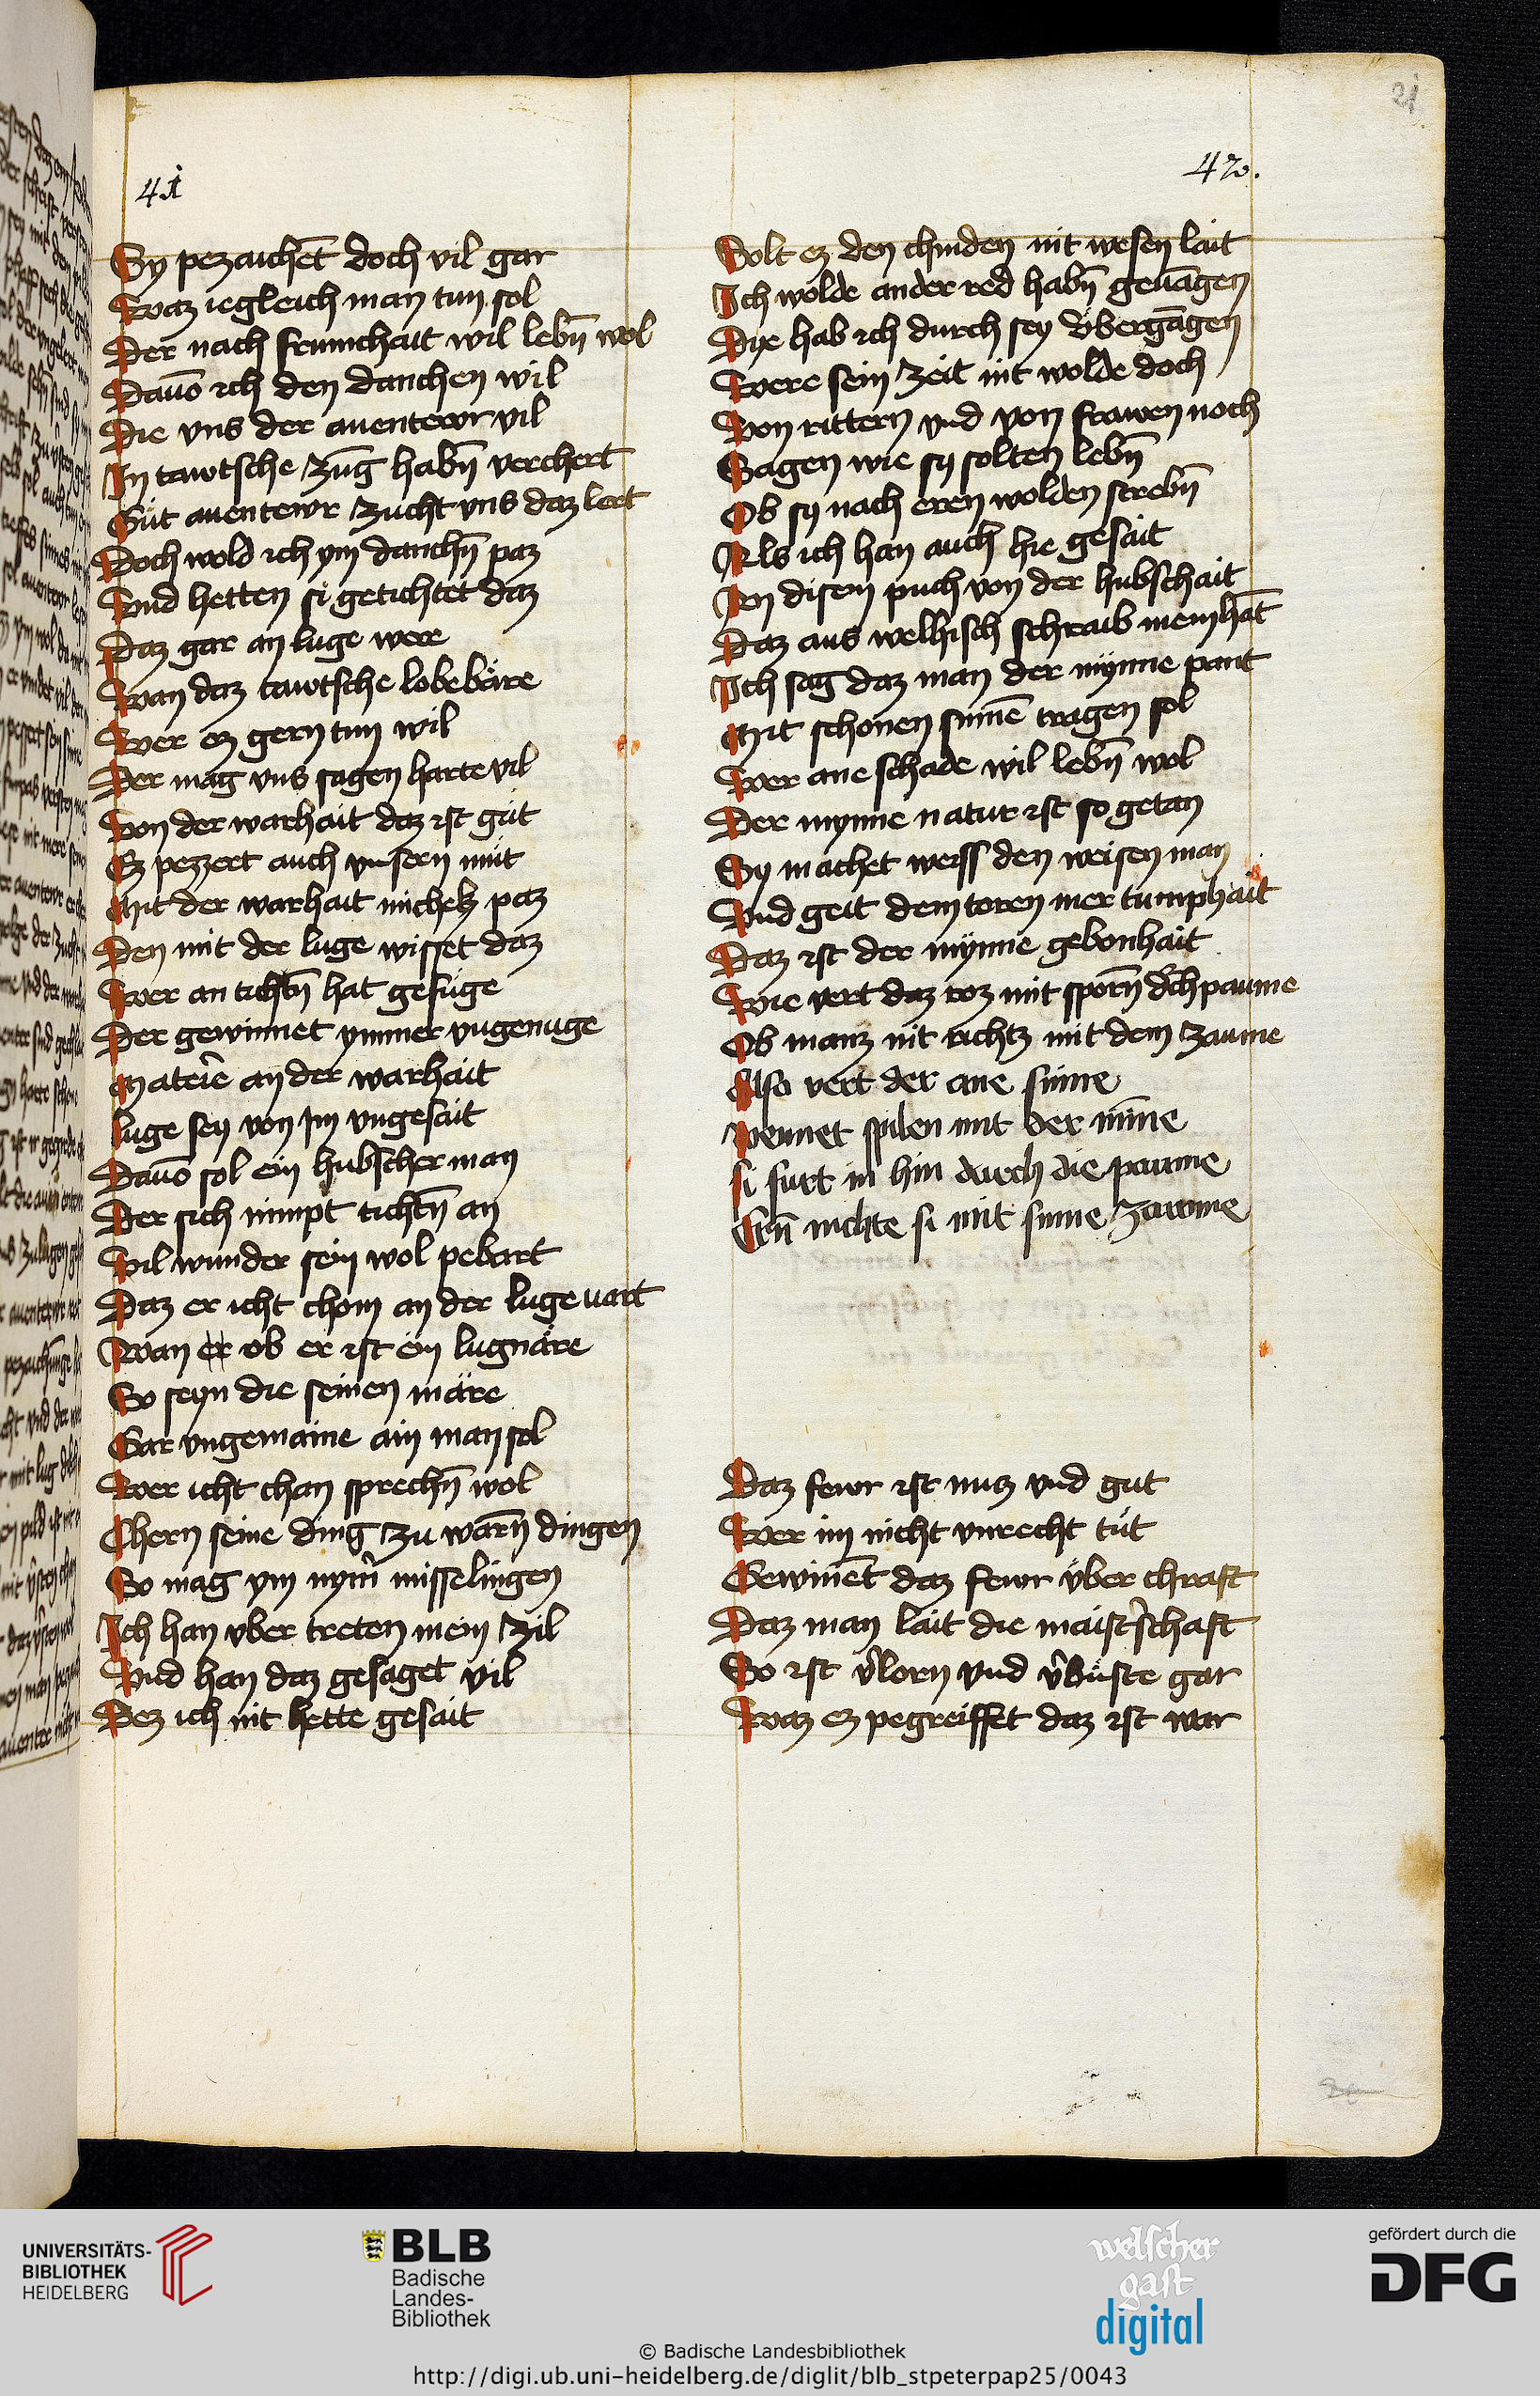 21
41
42.
Sy pezaichēt doch vil gar
Waz iegleich man tun sol
Der nach frumchait wil lebn̄ wol
Dauō ich den danchen wil
Die vns der auentewr vil
In tawtsche zūg habn̄ verchert
Güt auentewr zucht vns daz lert
Doch wold ich ym danchn̄ paz
Vnd hetten si getichtet daz
Daz gar an luge were
Wan daz tawtsche lobebäre
Wer ez gern tun wil
Der mag vns sagen harte vil
Von der warhait daz ist güt
Ez pezzert auch vnsern müt
Mit der warhait michelz paz
Den mit der luge wisset daz
Wer an tichtn̄ hat gefüge
Der gewinnet ymmer vngenuge
Materie an der warhait
Luge sey von Im vngesait
Dauō sol ein hubscher man
Der sich nimpt tichtn̄ an
Vil wunder sein wol pebart
Daz er icht chom an der luge uart
Wan er ob er ist ein lugnäre
So seyn die seinen märe
Gar vngemaine ain man sol
Wer icht chan sprechn̄ wol
Chern seine ding zu warn̄ dingen
So mag ym nym̄ misselingen
Ich han vber treten mein zil
Vnd han daz gesaget vil
Dez ich nit hette gesait
Solt ez den chinden nit wesen lait
Ich wolde ander red habn̄ geuāgen
Die hab ich durch sey übergāgen
Were sein zeit nit wolde doch
Von rittern vnd von frawen noch
Sagen wie sy solten lebn̄
Ob sy nach eren wolden strebn̄
Als ich han auch hie gesait
An disem puch von der hubschait
Daz aus welhisch schraib mein hāt
Ich sag daz man der mynne pant
Mit schonen sinnē tragen sol
Wer ane schade wil lebn̄ wol
Der mynne natur ist so getan
Sy machet weiss den weisen man
Vnd geit dem toren mer tumphait
Daz ist der mynne gebonhait
Wie vert daz roz mit sporn̄ dch paume
Ob manz nit richtz mit dem zaume
Also vert der ane sinne
Wennet spilen mit der mīnne
Si furt in hin durch die paume
Ern̄ richte si mit sinne zaume
Daz fewr ist nutz vnd gut
Wer im nicht vnrecht tüt
Gewinēt daz fewr vber chraft
Daz man lait die maistschaft
So ist vlorn vnd vbüste gar
Waz ez pegreiffet daz ist war
UNIVERSITÄTS-
BIBLIOTHEK
HEIDELBERG
BLB
Badische
Landes-
Bibliothek
welscher
gast
digital
gefördert durch die
DFG
© Badische Landesbibliothek
http://digi.ub.uni-heidelberg.de/diglit/blb_stpeterpap25/0043